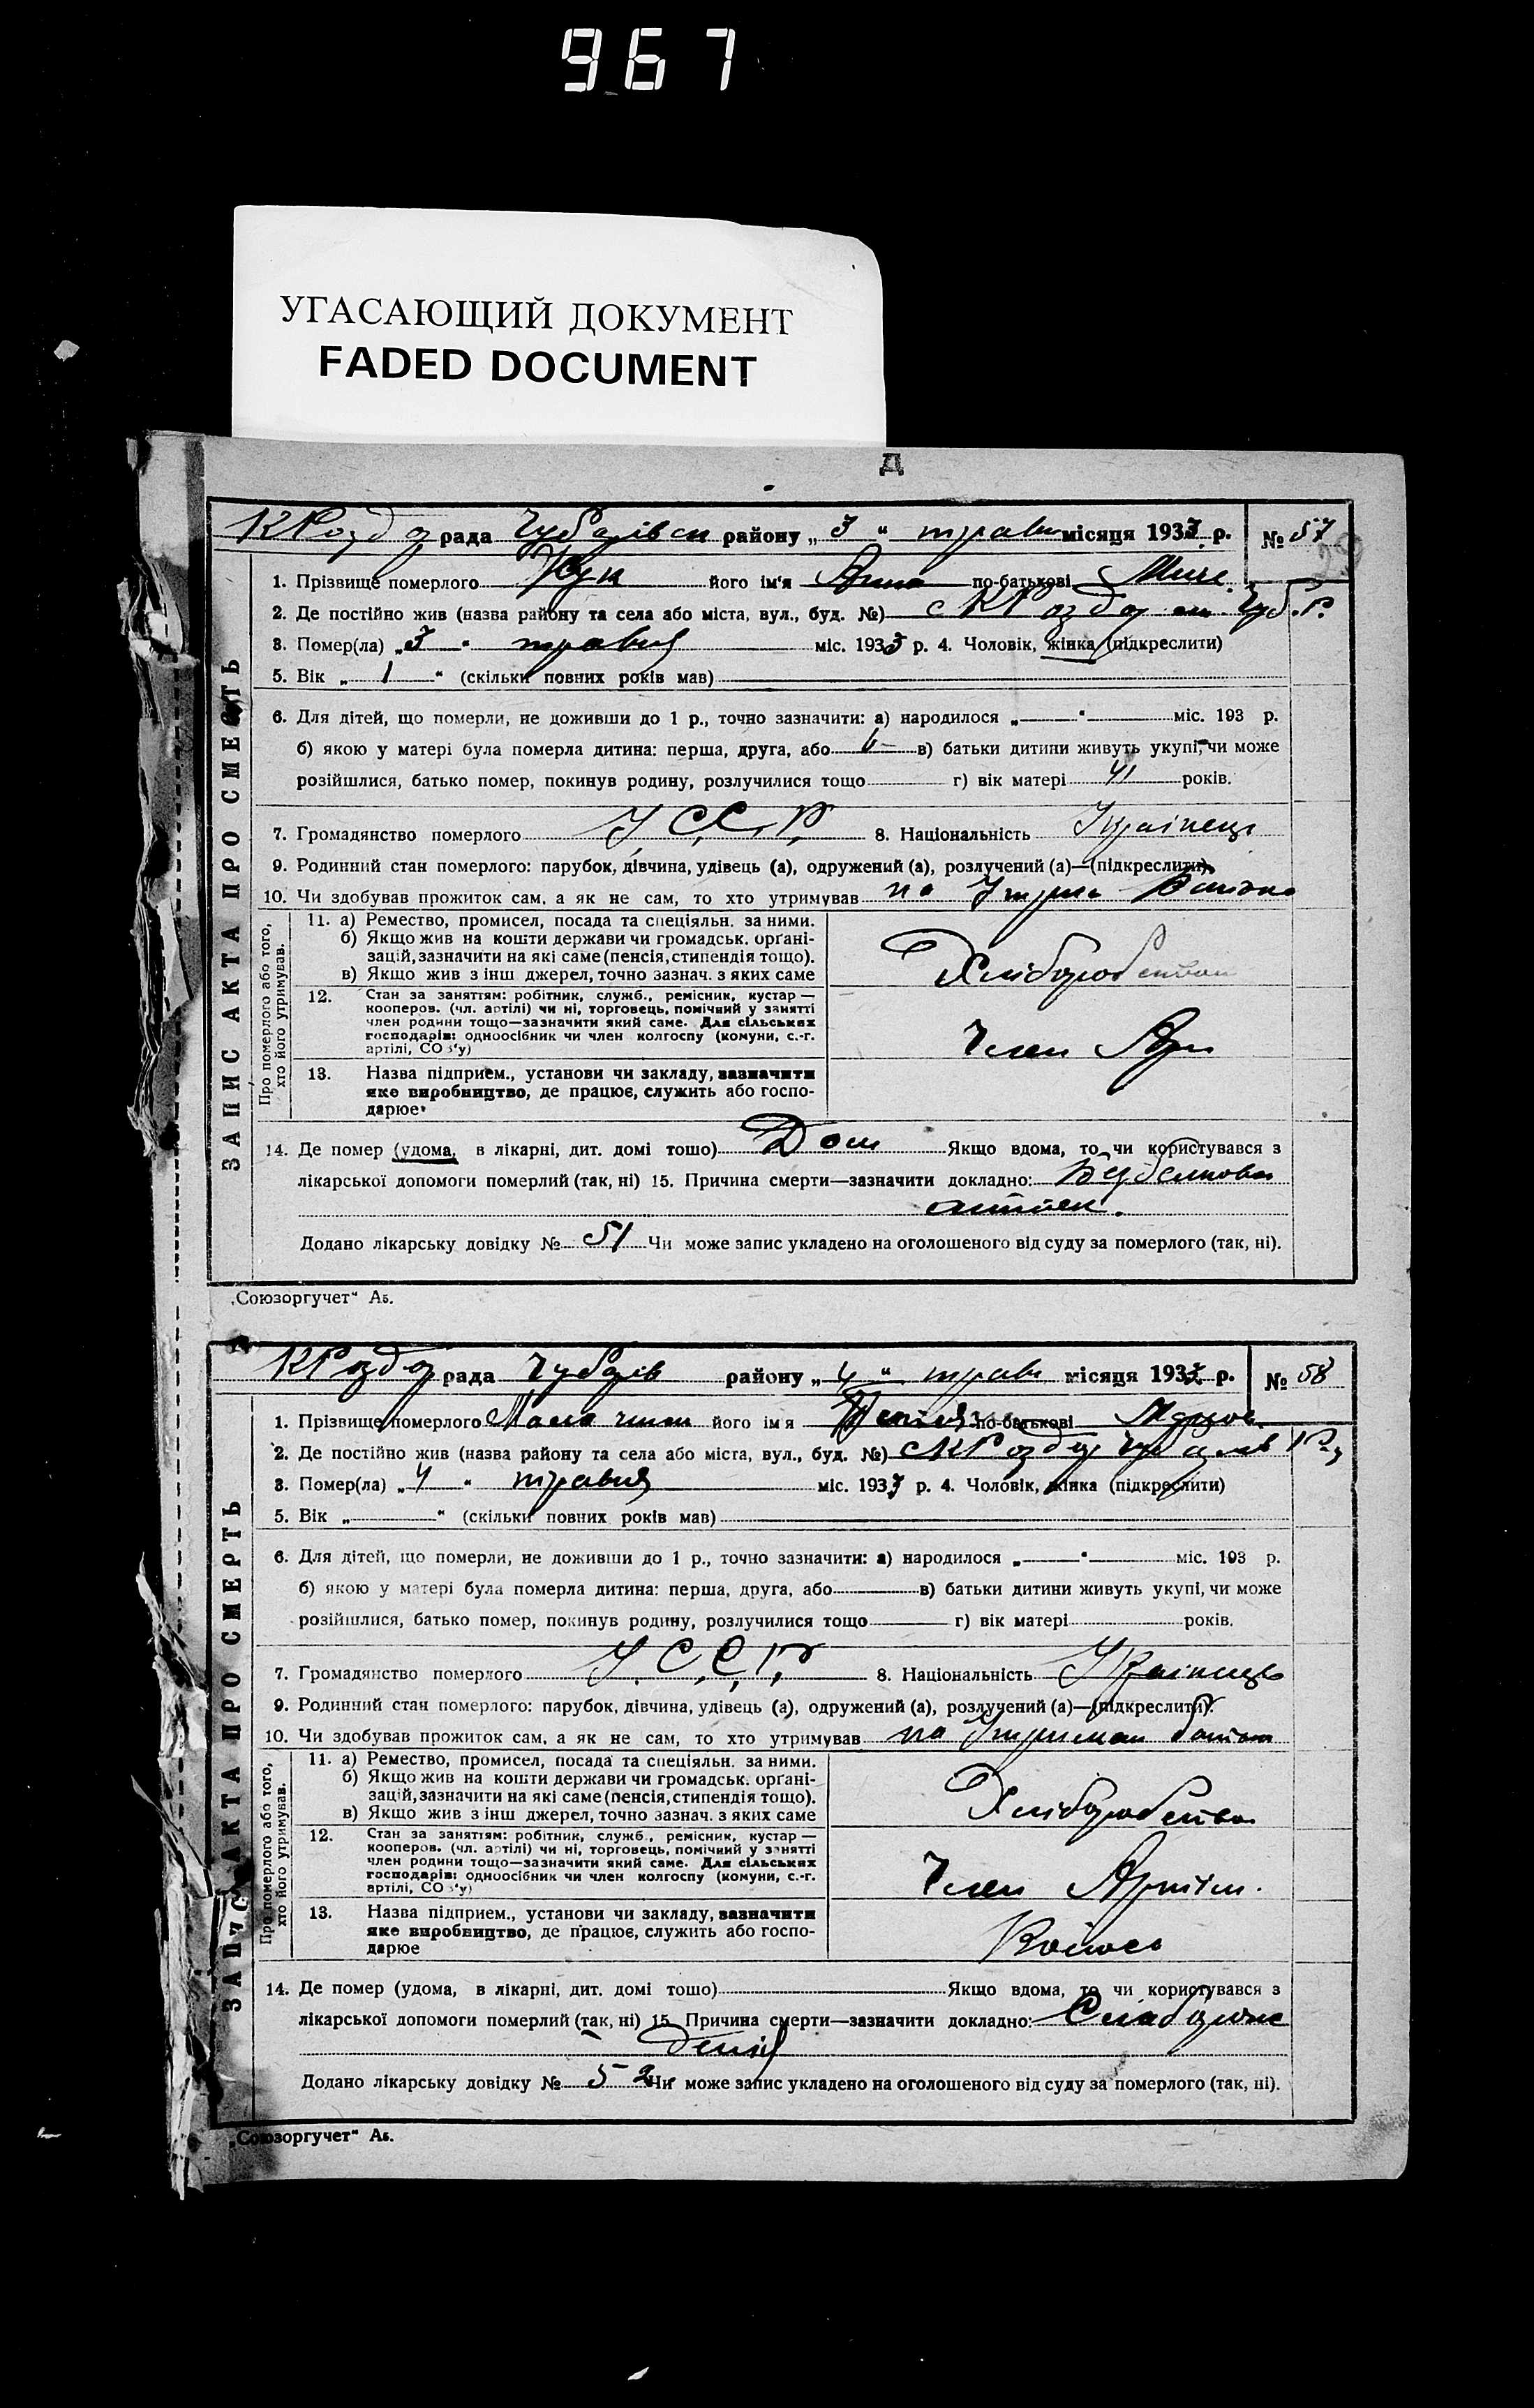 967
УГАСАЮЩИЙ ДОКУМЕНТ
FADED DOCUMENT
Д
рада району „ 3 “ трав місяця 1933 р. № 57
ЗАПИС АКТА ПРО СМЕРТЬ
1. Прізвище померлого його ім'я Анна по-батькові
2. Де постійно жив (назва району та села або міста, вул., буд. №) с
3. Помер(ла) „ 3 “ травня міс. 1933 р. 4. Чоловік, жінка (підкреслити)
5. Вік „ 1 “ (скільки повних років мав)
6. Для дітей, що померли, не доживши до 1 р., точно зазначити: а) народилося „ “ міс. 193 р.
б) якою у матері була померла дитина: перша, друга, або 6 в) батьки дитини живуть укупі, чи може
розійшлися, батько помер, покинув родину, розлучилися тощо г) вік матері 41 років.
7. Громадянство померлого У.С.С.Р. 8. Національність Українець
9. Родинний стан померлого: парубок, дівчина, удівець (а), одружений (а), розлучений (а)—(підкреслити).
10. Чи здобував прожиток сам, а як не сам, то хто утримував на
Про померлого або того,
хто його утримував.
11. а) Ремество, промисел, посада та спеціяльн. за ними.
б) Якщо жив на кошти держави чи громадськ. орґані-
зацій, зазначити на які саме (пенсія, стипендія тощо).
в) Якщо жив з інш джерел, точно зазнач. з яких саме
Хліборобство
12. Стан за заняттям: робітник, служб., ремісник, кустар —
кооперов. (чл. артілі) чи ні, торговець, помічний у занятті
член родини тощо—зазначити який саме. Для сільських
господарів: одноосібник чи член колгоспу (комуни, с.-г.
артілі, СОЗ'у)
Член Арт
13. Назва підприєм., установи чи закладу, зазначити
яке виробництво, де працює, служить або госпо-
дарює
14. Де помер (удома, в лікарні, дит. домі тощо) Дом Якщо вдома, то чи користувався з
лікарської допомоги померлий (так, ні) 15. Причина смерти—зазначити докладно:
Додано лікарську довідку № 51 Чи може запис укладено на оголошеного від суду за померлого (так, ні).
„Союзоргучет“ Аб.
рада району „ 4 “ трав місяця 1933 р. № 58
ЗАПИС АКТА ПРО СМЕРТЬ
1. Прізвище померлого його ім'я по-батькові
2. Де постійно жив (назва району та села або міста, вул., буд. №)
3. Помер(ла) „ 4 “ травня міс. 1933 р. 4. Чоловік, жінка (підкреслити)
5. Вік „ “ (скільки повних років мав)
6. Для дітей, що померли, не доживши до 1 р., точно зазначити: а) народилося „ “ міс. 193 р.
б) якою у матері була померла дитина: перша, друга, або в) батьки дитини живуть укупі, чи може
розійшлися, батько помер, покинув родину, розлучилися тощо г) вік матері років.
7. Громадянство померлого У.С.С.Р. 8. Національність Українець
9. Родинний стан померлого: парубок, дівчина, удівець (а), одружений (а), розлучений (а)—(підкреслити).
10. Чи здобував прожиток сам, а як не сам, то хто утримував на
Про померлого або того,
хто його утримував.
11. а) Ремество, промисел, посада та спеціяльн. за ними.
б) Якщо жив на кошти держави чи громадськ. орґані-
зацій, зазначити на які саме (пенсія, стипендія тощо).
в) Якщо жив з інш джерел, точно зазнач. з яких саме
Хліборобство
12. Стан за заняттям: робітник, служб., ремісник, кустар —
кооперов. (чл. артілі) чи ні, торговець, помічний у занятті
член родини тощо—зазначити який саме. Для сільських
господарів: одноосібник чи член колгоспу (комуни, с.-г.
артілі, СОЗ'у)
Член Артіл.
13. Назва підприєм., установи чи закладу, зазначити
яке виробництво, де працює, служить або госпо-
дарює
14. Де помер (удома, в лікарні, дит. домі тощо) Якщо вдома, то чи користувався з
лікарської допомоги померлий (так, ні) 15. Причина смерти—зазначити докладно:
Додано лікарську довідку № 52 Чи може запис укладено на оголошеного від суду за померлого (так, ні).
„Союзоргучет“ Аб.